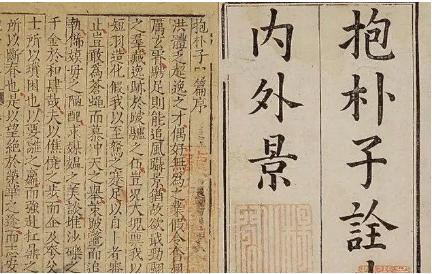 抱朴子詮
内外景
抱朴子篇序
洪體乏超逸之才偶好無為之業假令奮
厲玄霄騁足則能追風躡景猶故欲戢勁翮
之羣藏逸跡於跛驢之伍豈況大塊稟我以
短羽造化假我以至駑之蹇足以自卜者審
止豈敢為蒼蠅而慕冲天之舉策跛鱉而追
飾嫫母之陋醜求媒陽之美談堆沙礫之
千金於和肆哉夫以僬僥之步而企及夸父
士所以躓困也以要離之羸而強赴扛鼎之
所以斷筋也是以望絕於榮華之途而志安